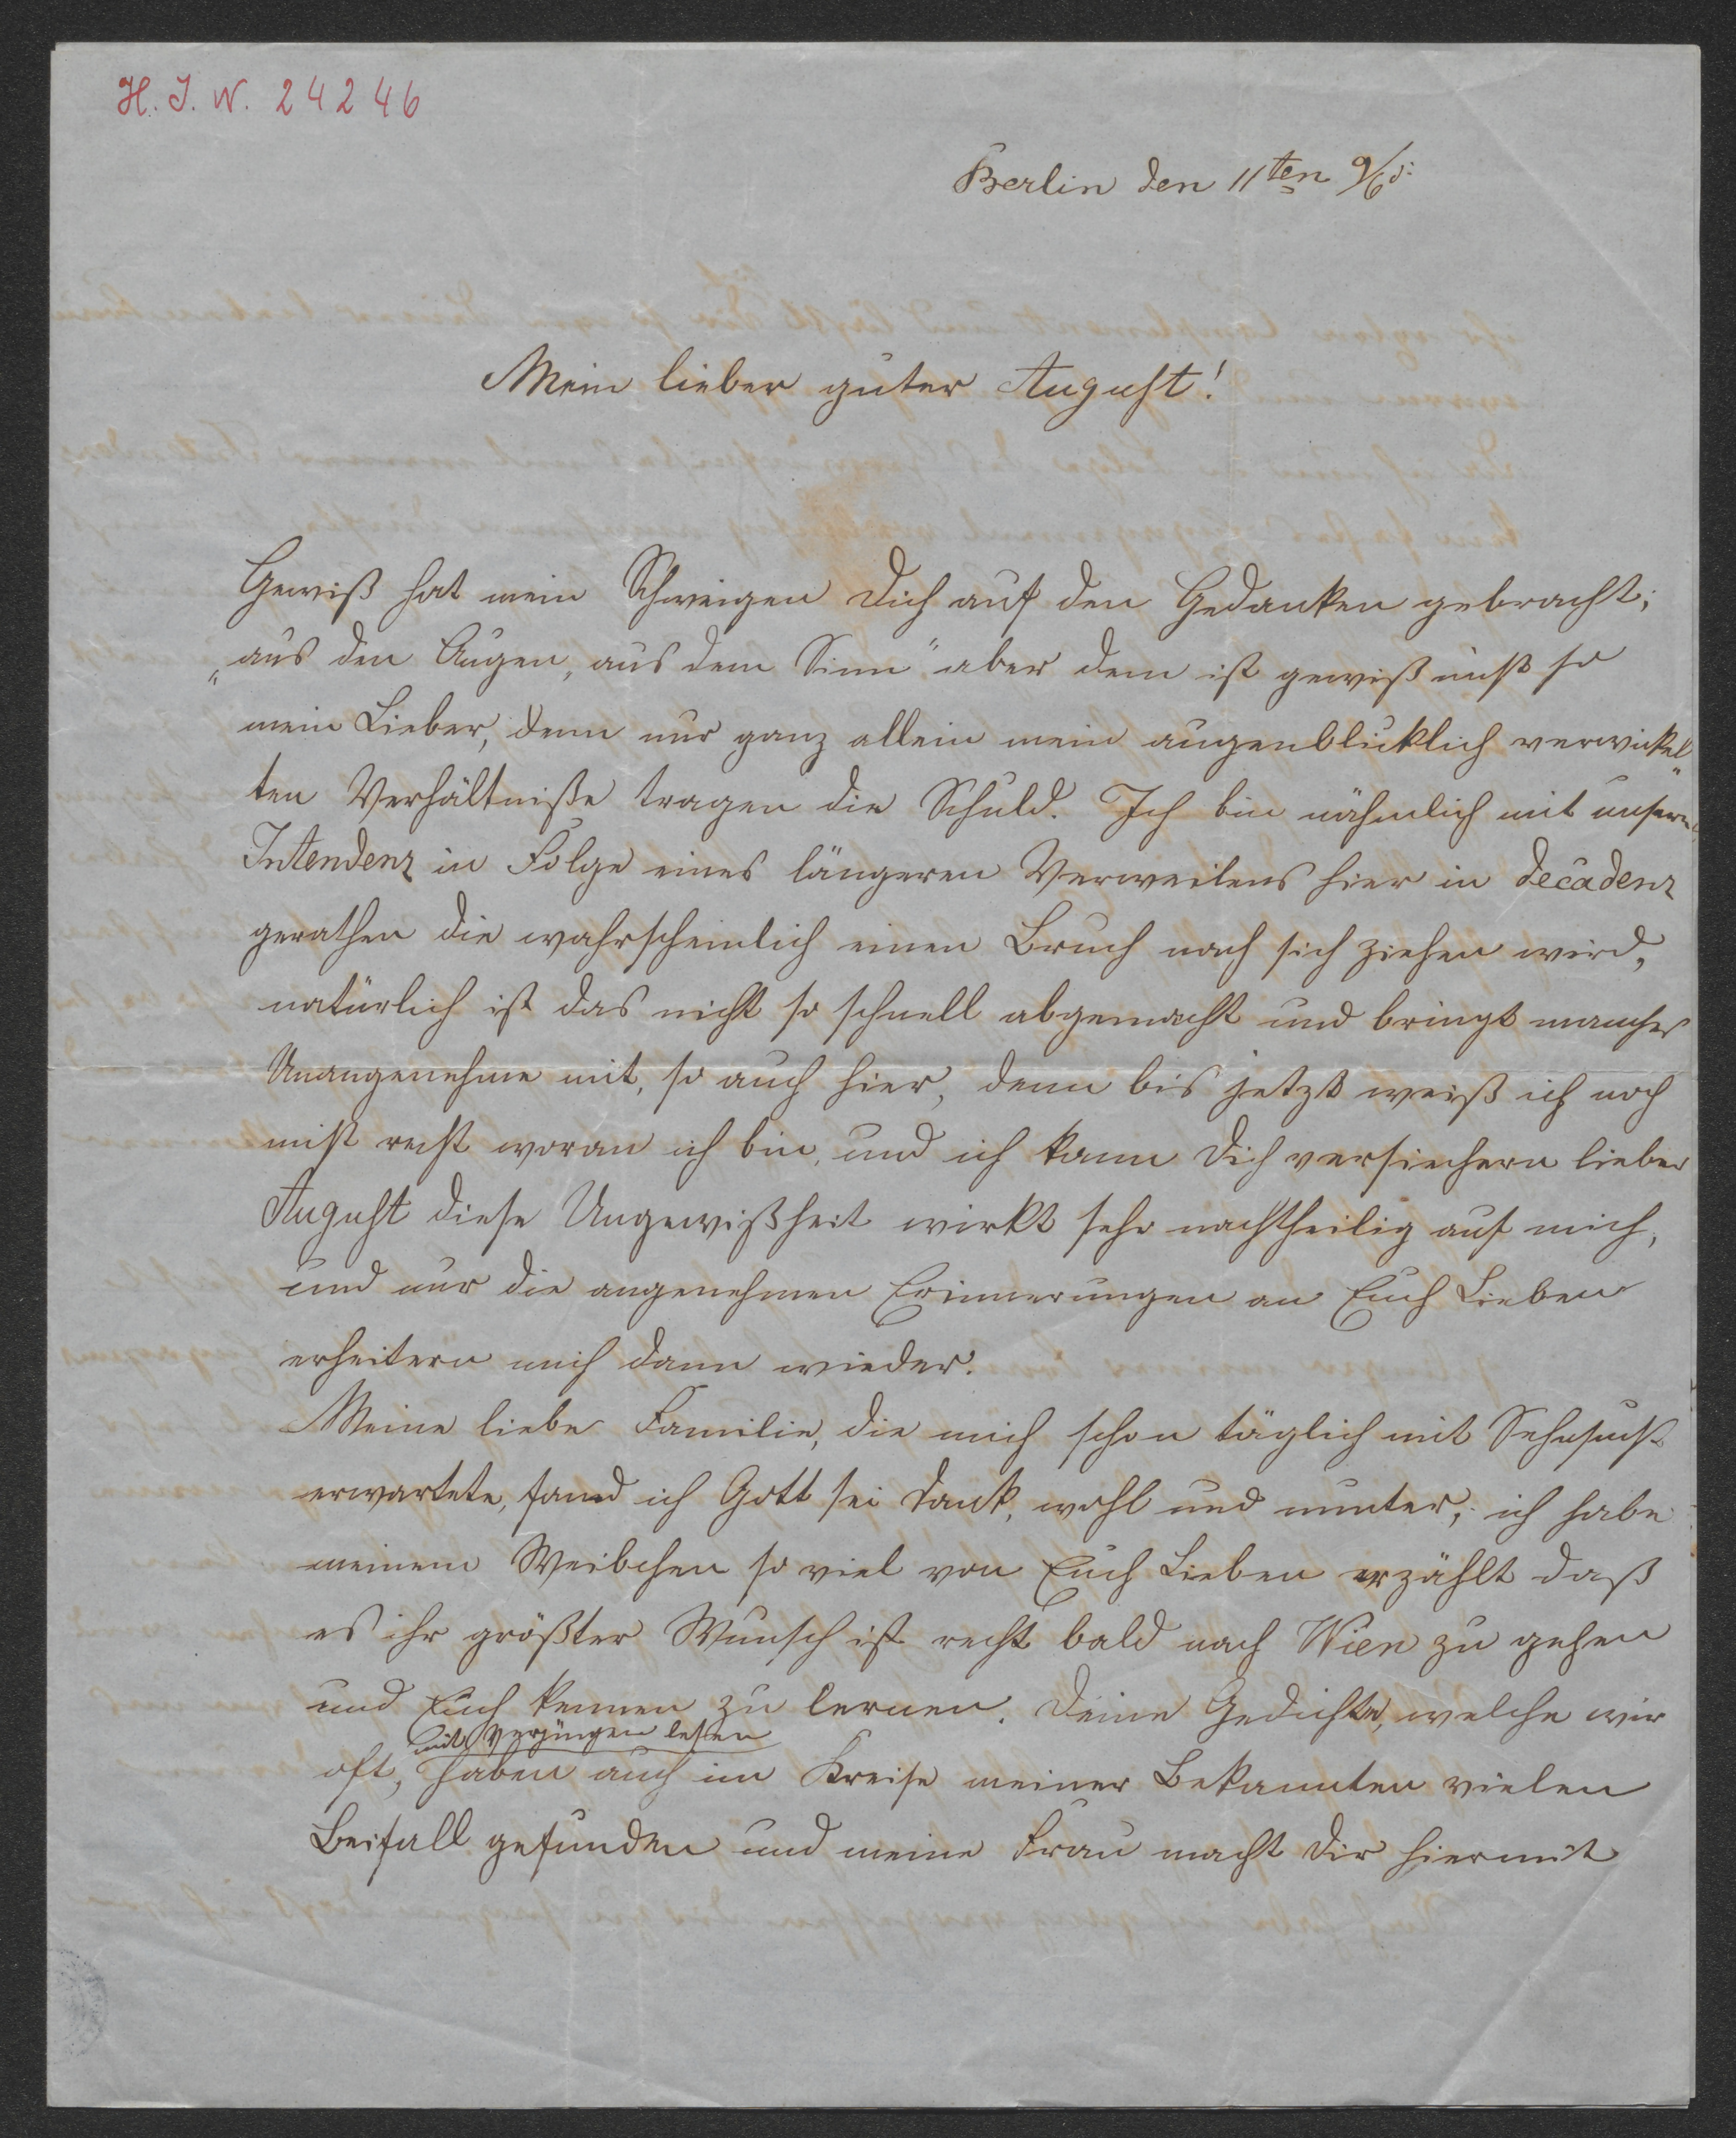 H. I. N. 24246
Berlin den 11ten 9/65.
Mein lieber guter August!
Gewiß hat mein Schweigen Dich auf den Gedanken gebracht;
„aus den Augen, aus dem Sinn" aber dem ist gewiß nicht so
mein Lieber, denn nur ganz allein mein augenblicklich verwickel
ten Verhältniße tragen die Schuld. Ich bin nähmlich mit unserer
Intendenz in Folge eines längeren Verweilens hier in decadenz
gerathen die wahrscheinlich einen Bruch nach sich ziehen wird,
natürlich ist das nicht so schnell abgemacht und bringt manches
Unangenehme mit, so auch hier, denn bis jetzt weiß ich noch
nicht recht woran ich bin, und ich kann Dich versiechern lieber
August diese Ungewißheit wirkt sehr nachtheilig auf mich,
und nur die angenehmen Erinnerungen an Euch Lieben
erheitern mich dann wieder.
Meine liebe Familie, die mich schon täglich mit Sehnsucht
erwartete, fand ich Gott sei Dank, wohl und munter; ich habe
meinem Weibchen so viel von Euch Lieben erzählt daß
es ihr größter Wunsch ist recht bald nach Wien zu gehen
und Euch kennen zu lernen. Deine Gedichte, welche wir
mit Vergüngen lesen
oft, haben auch im Kreise meiner Bekannten vielen
Beifall gefunden und meine Frau macht Dir hiermit